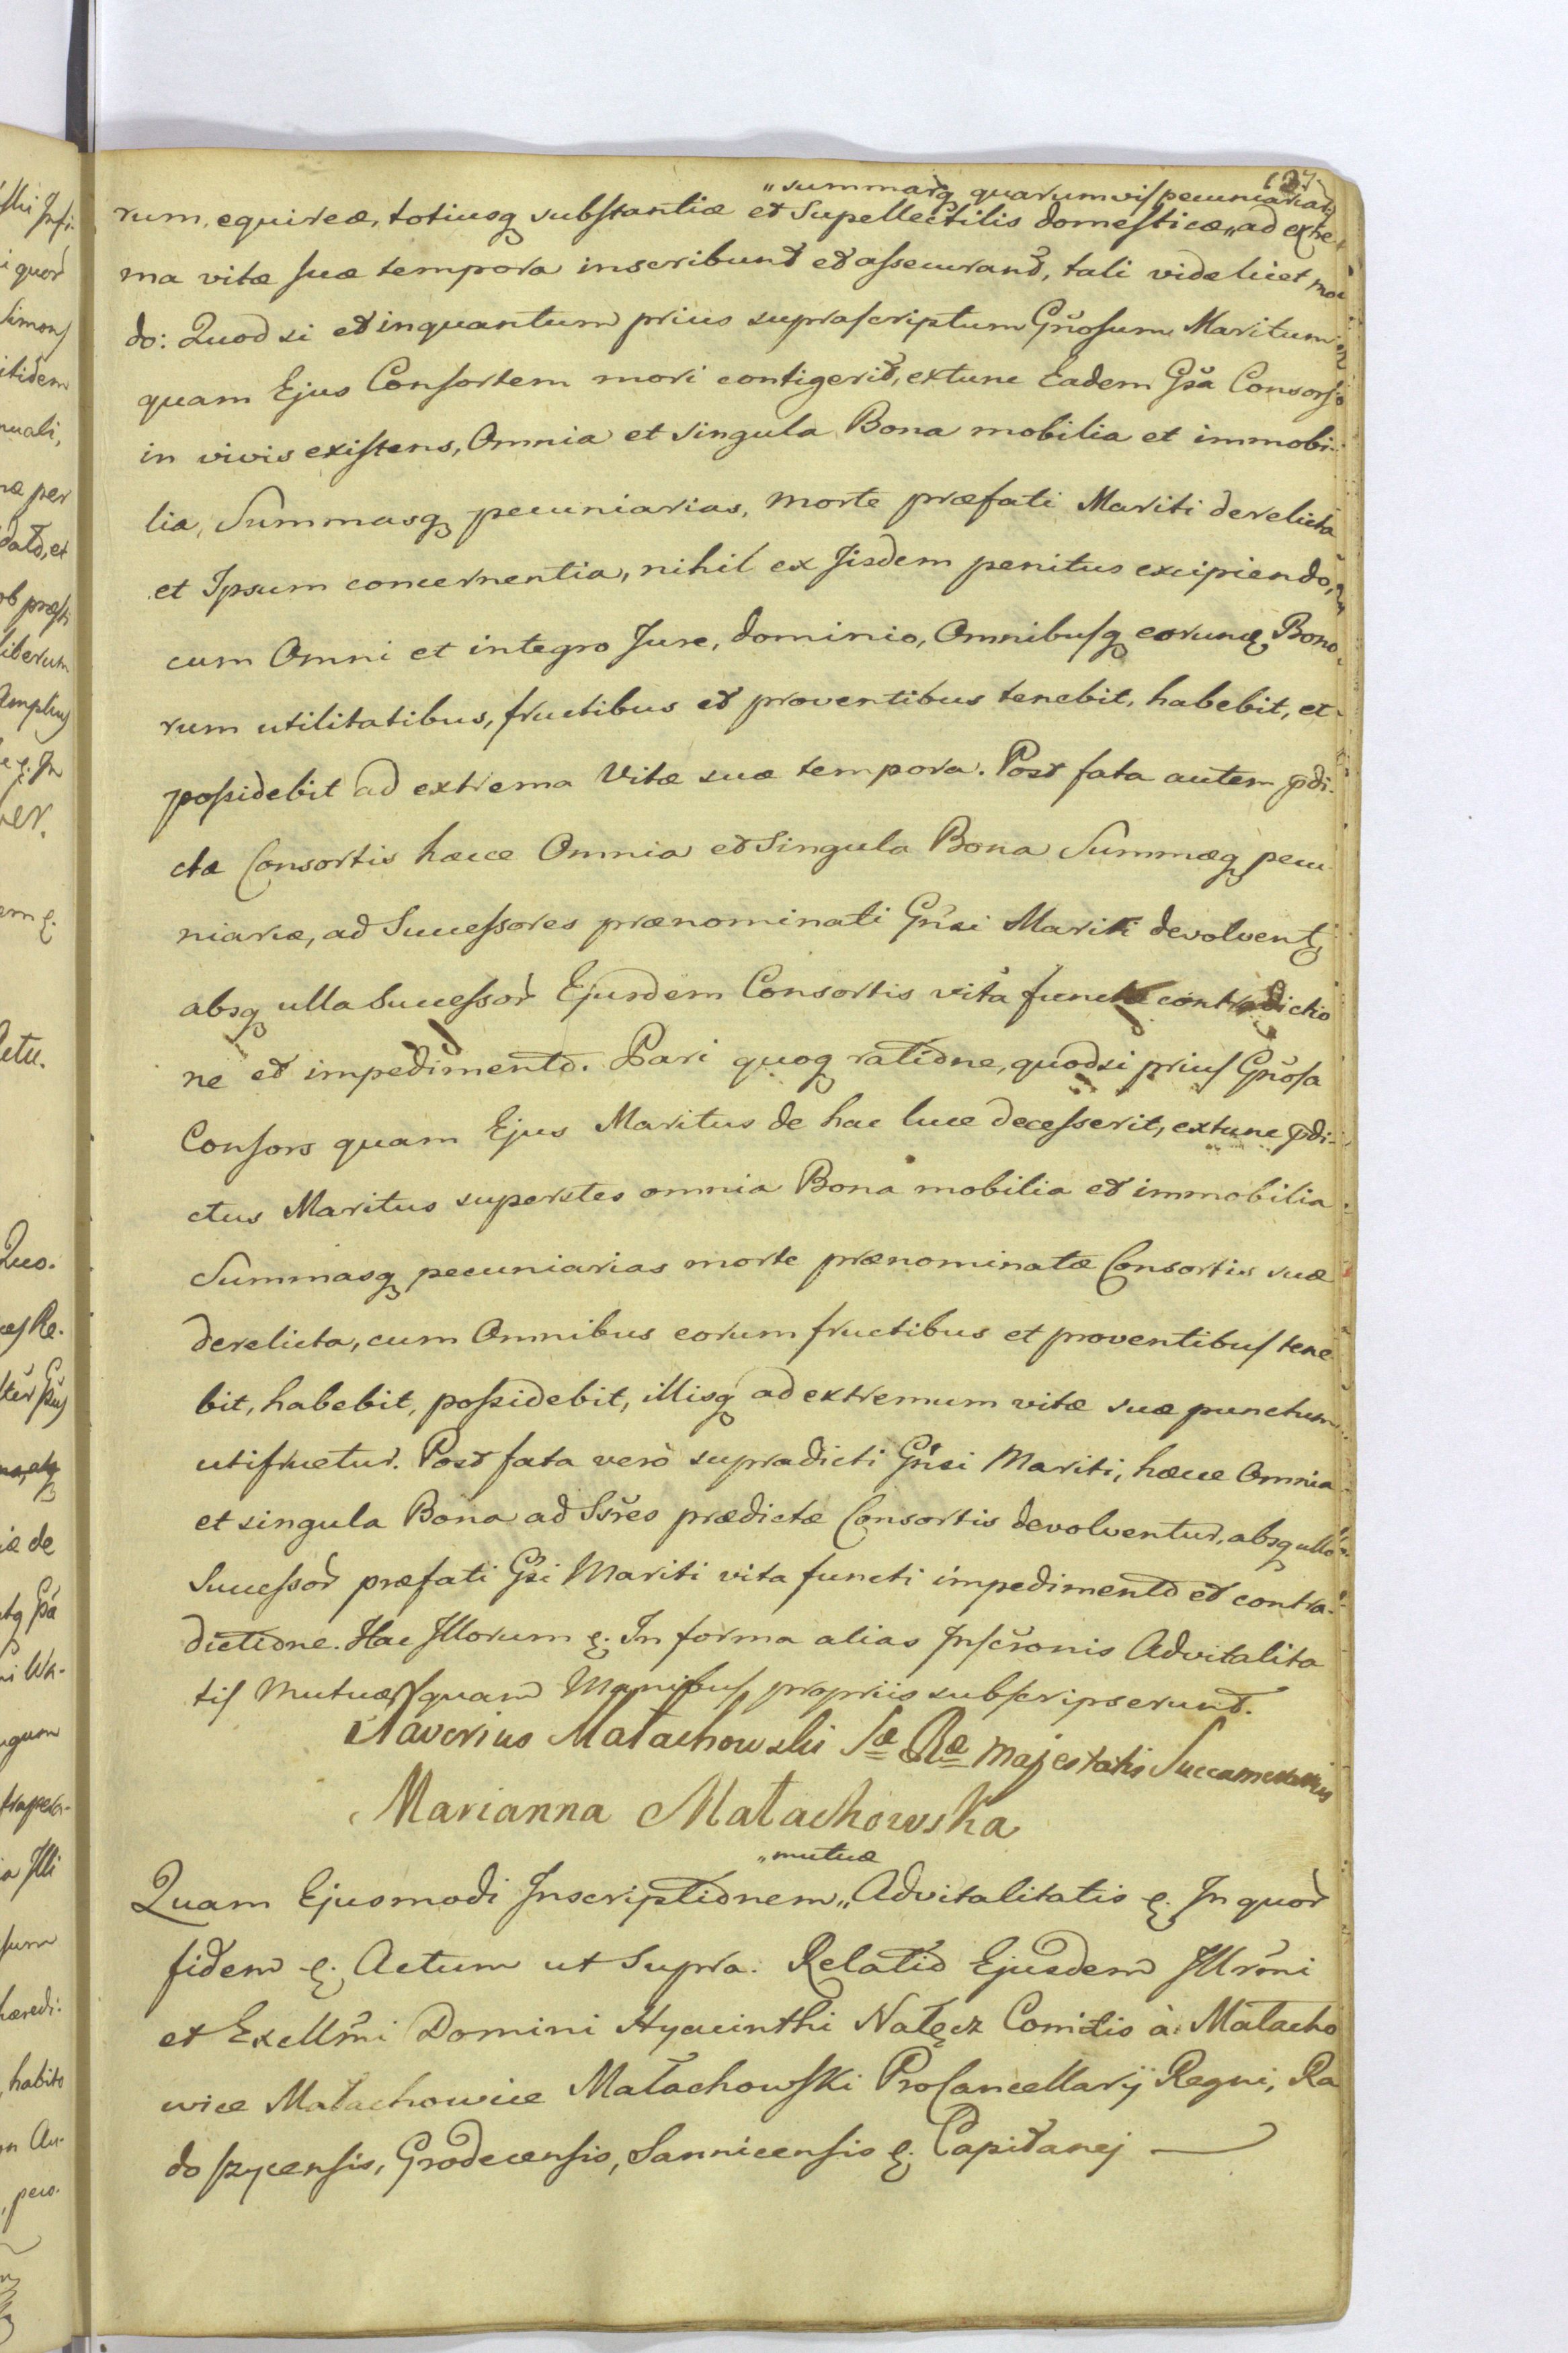 137.
„summarq quarumvis pecuniariar
rum, equireæ, totiusq substantiæ et Supellectilis domesticæ„ ad extre
ma vitæ suæ tempora inscribunt et assecurant, tali videlicet mo
do: Quod si et inquantum prius suprascriptum Gnosum Maritum
quam Ejus Consortem mori contigerit, extunc Eadem Gsa Consors
in vivis existens, Omnia et singula Bona mobilia et immobi-
lia, Summasq pecuniarias, morte præfati Mariti derelicta
et Ipsum concernentia, nihil ex Jisdem penitus excipiendo,
cum Omni et integro Jure, dominio, Omnibusq eorunq Bono
rum utilitatibus, fructibus et proventibus tenebit, habebit, et
possidebit ad extrema Vitæ suæ tempora. Post fata autem pdi-
ctæ Consortis hæce Omnia et Singula Bona Summæq pecu
niariæ, ad Successores prænominati Gnsi Mariti devolvent
absq ulla Successor Ejusdem Consortis vita functæ contradictio
ne et impedimento. Pari quoq ratione, quodsi prius Gnosa
Consors quam Ejus Maritus de hac luce decesserit, extunc pdi-
ctus Maritus superstes omnia Bona mobilia et immobilia
Summasq pecuniarias morte prænominatæ Consortis suæ
derelicta, cum Omnibus eorum fructibus et proventibus tene
bit, habebit, possidebit, illisq ad extremum vitæ suæ punctum
utifruetur. Post fata verò supradicti Gnsi Mariti, hæce Omnia
et singula Bona ad Ssres prædictæ Consortis devolventur, absq ullo
Successor præfati Gsi Mariti vita functi impedimento et contra-
dictione. Hac Illorum &. In forma alias Inscronis Advitalita
tis Mutuæ quam Manibus propriis subscripserunt.
Xaverius Małachowski Sæ Ræ Majestatis Succamerarius
Marianna Małachowska
„mutuæ
Quam Ejusmodi Inscriptionem„ Advitalitatis &. In quor
fidem &. Actum ut Supra. Relatio Ejusdem Illrmi
et Excllmi Domini Hyacinthi Nałęcz Comitis à Małacho
wice Małachowice Małachowski ProCancellarij Regni, Ra
doszycensis, Grodecensis, Sannicensis &. Capitanej